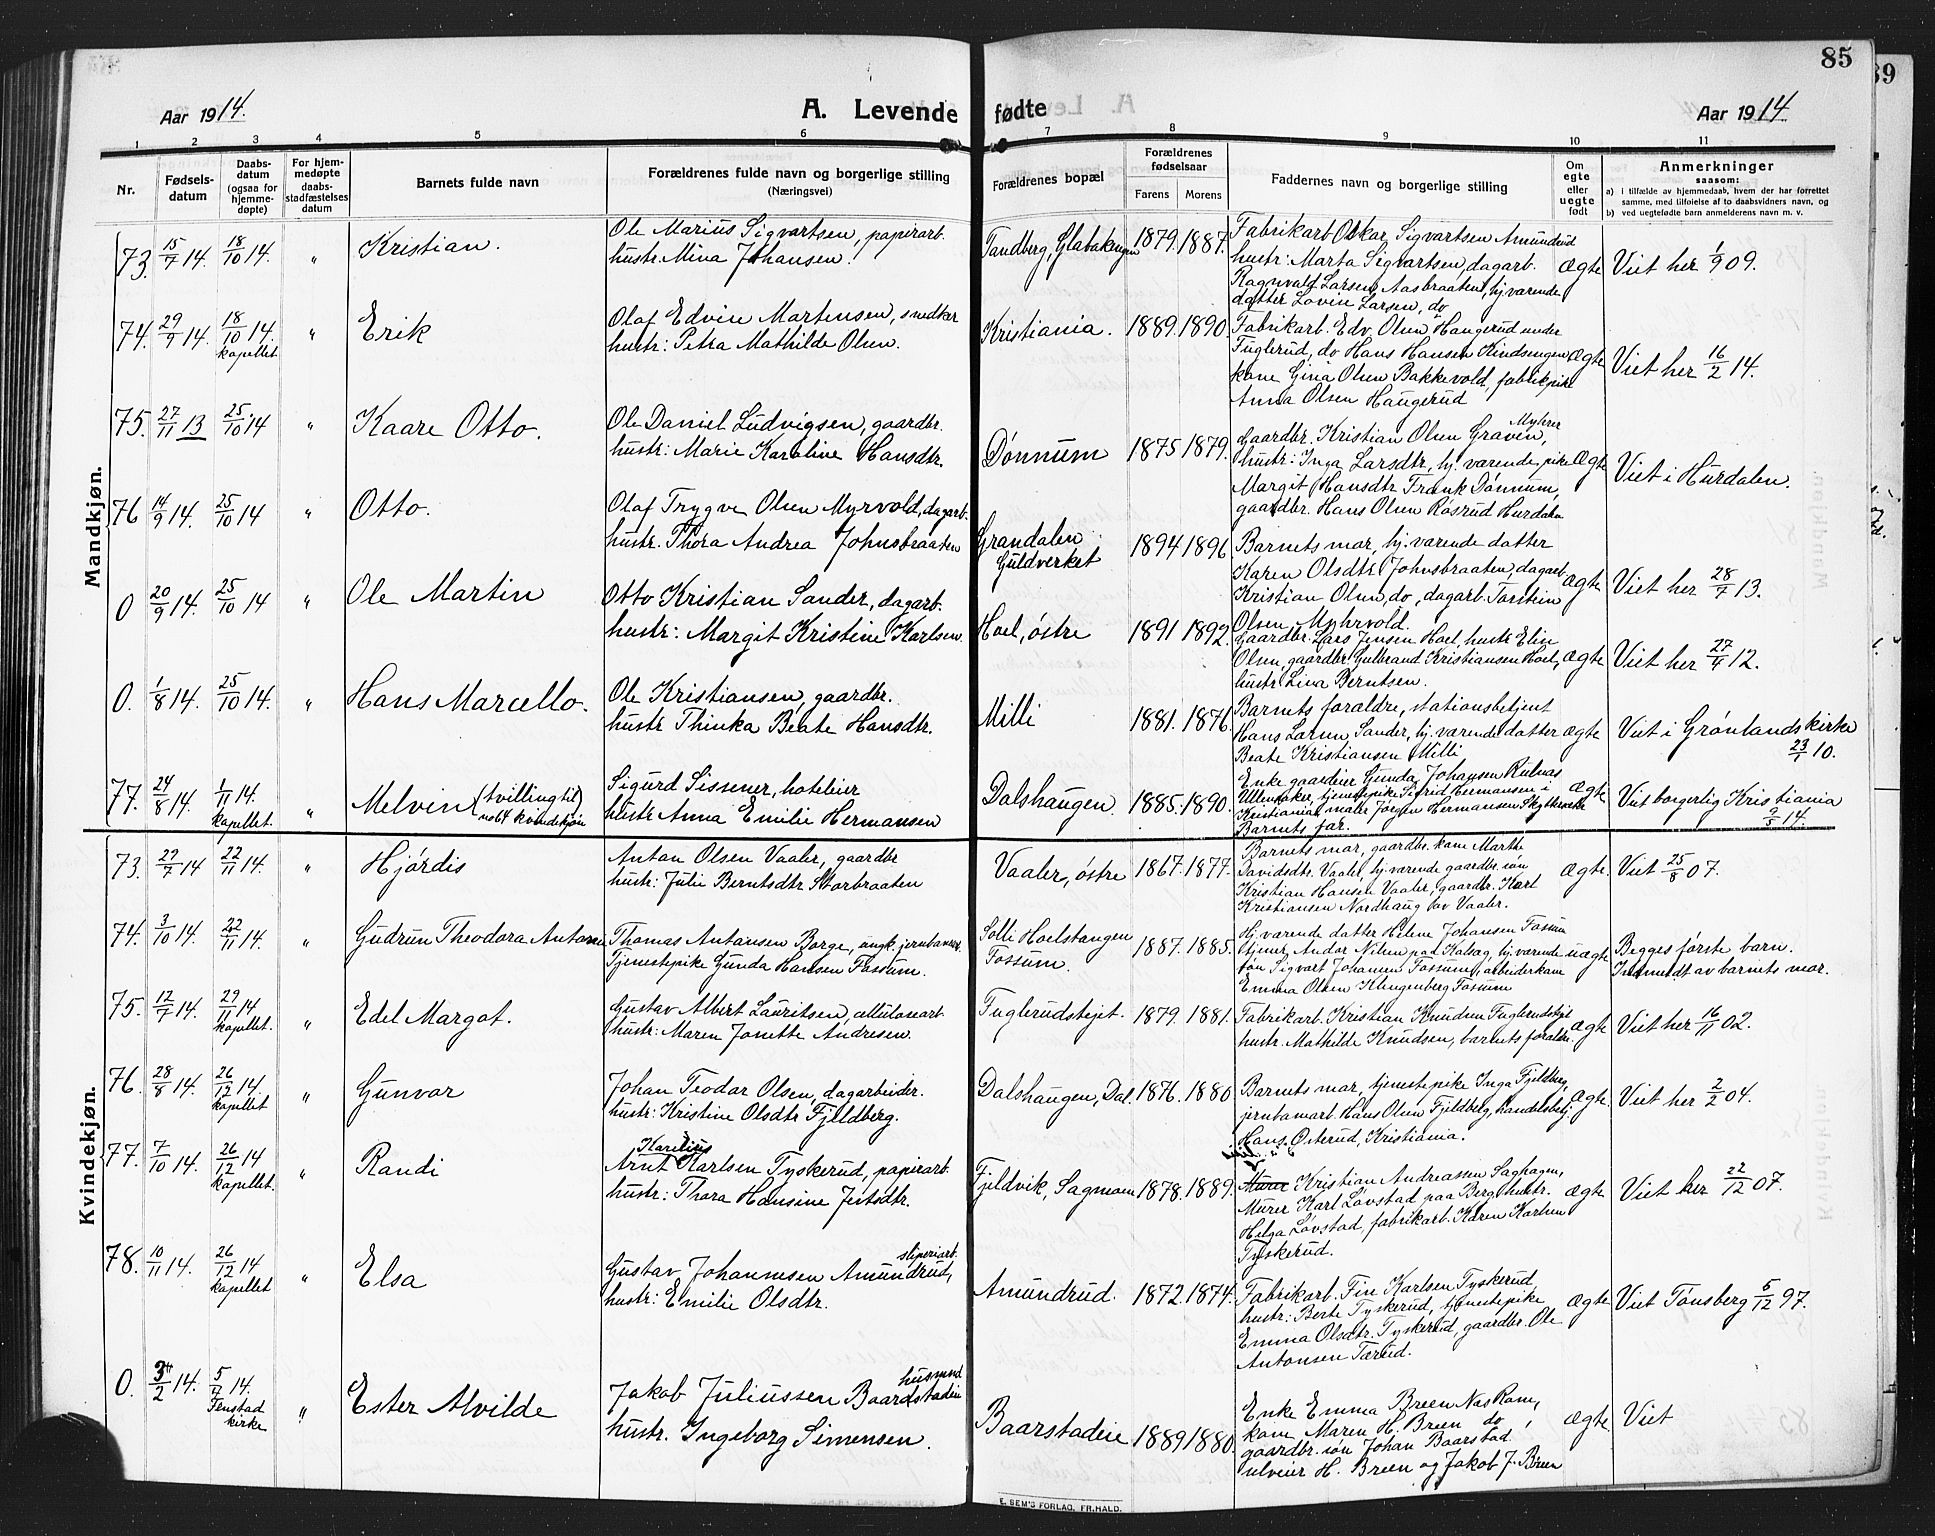 85
89
Aar 1914.
A. Levende fødte
Aar 1914
1 2 3 4 5 6 7 8 9 10 11
Nr.
Fødsels-
datum
Daabs-
datum
(ogsaa for
hjemme-
døpte)
For hjem-
medøpte
daabs-
stadfæstelses
datum
Barnets fulde navn
Forældrenes fulde navn og borgerlige stilling
(Næringsvei)
Forældrenes bopæl
Forældrenes
fødselsaar
Farens Morens
Faddernes navn og borgerlige stilling
Om
egte
eller
uegte
født
Anmerkninger
saasom:
a) i tilfælde av hjemmedaab, hvem der har forrettet
samme, med tilføielse af to daabsvidners navn, og
b) ved uegtefødte barn anmelderens navn m. v.
Mandkjøn.
73. 15/7 14. 18/10 14. " Kristian.
Ole Marius Sigvartsen, papirarb.
hustr. Mina Johansen.
Tandberg, 1879. 1887.
Fabrikarb. Oskar Sigvartsen Amundrud
hustr: Marta Sigvartsen, dagarb.
Ragnvald Larsen Aasbraaten, hj. værende
datter Lovise Larsen, do
Ægte Viet her 1/9 09.
74. 29/9 14. 18/10 14. kapellet " Erik
Olaf Edvin Martensen, snedker
hustr: Petra Mathilde Olsen.
Kristiania. 1889. 1890.
Fabrikarb. Edv. Olsen Haugerud under
Fuglerud, do Hans Hansen Kindsengen
kone Gina Olsen Bakkevold, fabrikpike
Anna Olsen Haugerud
Ægte Viet her 16/2 14.
75. 27/11 13 25/10 14 " Kaare Otto.
Ole Daniel Ludvigsen, gaardbr.
hustr: Marie Karoline Hansdtr.
Dønnum 1875 1879.
Gaardbr. Kristian Olsen Graven, Myhrer
hustr: Inga Larsdtr, hj. værende pike
Margit Hansdtr Frank Dønnum,
gaardbr. Hans Olsen Røsrud Hurdalen
Ægte Viet i Hurdalen.
76 14/9 14. 25/10 14 " Otto.
Olaf Trygve Olsen Myrvold, dagarb.
hustr. Thora Andrea Johnsbraaten
Grandalen
Guldverket 1894 1896
Barnets mor, hj. værende datter
Karen Olsdtr Johnsbraaten, dagarb
Kristian Olsen, do, dagarb. Torstein
Olsen Myhrvold.
Ægte Viet her 28/7 13.
0 20/9 14. 25/10 14 " Ole Martin
Otto Kristian Sander, dagarb.
hustr: Margit Kristine Karlsen.
Hoel, østre 1891 1892
Gaardbr. Lars Jensen Hoel, hustr Elise
Olsen, gaardbr. Gulbrand Kristiansen Hoel,
hustr Lina Berntsen.
Ægte Viet her 27/4 12.
0. 1/8 14. 25/10 14. " Hans Marcello.
Ole Kristiansen, gaardbr.
hustr Thinka Beate Hansdtr.
Milli 1881. 1876
Barnets foraldre, stationsbetjent
Hans Larsen Sander, hj. værende datter
Beate Kristiansen Milli
Ægte Viet i Grønlandskirke
23/1 10.
77. 24/8 14. 1/11 14. kapellet. " Melvin (tvilling til
no 64 kvindekjøn)
Sigurd Sissener, hoteleier
hustr Anna Emilie Hermansen
Dalshaugen. 1885. 1890.
Enke gaardeier Gunda Johansen
Ullensaker, tjenestepike Sigrid Hermansen i
Kristiania, maler Jørgen Hermansen
Barnets far.
Ægte Viet borgerlig Kristiania
9/5 14.
Kvindekjøn.
73. 29/7 14 22/11 14. " Hjørdis
Anton Olsen Vaaler, gaardbr
hustr: Julie Berntsdtr Storbraaten
Vaaler, østre 1867. 1877.
Barnets mor, gaardbr. kone Marthe
Davidsdtr. Vaaler, hj. værende gaardbr. søn
Kristian Hansen Vaaler, gaardbr. Karl
Kristiansen Nordhaug av Vaaler.
Ægte. Viet 25/8 07.
74. 3/10 14. 22/11 14. " Gudrun Theodora Antonie
Thomas Antonsen Borge, ungk. jernbanearb.
Tjenestepike Gunda Hansen Fossum.
Solli Hoelstangen
Fossum. 1887. 1885.
Hj. værende datter Helene Johansen Fossum
tjener Andor Nilsen paa Kalsag, hj. værende
søn Sigvart Johansen Fossum, arbeiderkone
Emma Olsen Klingenberg Fossum
uægte Begges første barn.
Indmeldt av barnets mor.
75. 12/7 14. 29/11 14 kapellet. " Edel Margot.
Gustav Albert Lauritsen, cellulosearb
hustr: Maren Jonette Andresen.
Fuglerudstejet. 1879. 1881.
Fabrikarb. Kristian Knudsen Fuglerudstejet
hustr. Mathilde Knudsen, barnets foraldre.
Ægte Viet her 16/11 02.
76. 28/8 14. 26/12 14. kapellet " Gunvor
Johan Teodor Olsen, dagarbeider.
hustr: Kristine Olsdtr Fjeldberg.
Dalshaugen, Dal. 1876. 1880
Barnets mor, tjenestepike Inga Fjeldberg,
jernbanearb. Hans Olsen Fjeldberg, handelsbetj.
Hans Osterud, Kristiania.
Ægte. Viet her 2/2 04.
77. 7/10 14. 26/12 14 kapellet. " Randi
Karelius
Arnt Karlsen Tyskerud, papirarb.
hustr: Thora Hansine Jensdtr.
Fjeldvik, Sagmoen 1878. 1889.
Murer Kristian Andreassen Saghagen,
Murer Karl Løvstad paa Berg, hustr.
Helga Løvstad, fabrikarb. Karen Karlsen
Tyskerud.
Ægte Viet her 22/12 07.
78. 10/11 14. 26/12 14 kapellet " Elsa
sliperiarb.
Gustav Johannesen Amundrud,
hustr: Emilie Olsdtr.
Amundrud. 1872. 1874.
Fabrikarb. Finn Karlsen Tyskerud,
hustr: Berte Tyskerud, tjenestepike
Emma Olsdtr. Tyskerud, gaardbr. Ole
Antonsen Tærud.
Ægte Viet Tønsberg 5/12 97.
0. 3/2 14. 5/7 14. Fenstad
kirke " Ester Alvilde
husmand
Jakob Juliussen Baardstadeie
hustr. Ingeborg Simensen.
Baarstadeie 1889 1880.
Enke Emma Breen Nes Rom,
kone Maren H. Breen do,
gaardbr. søn Johan Baarstad
H. Breen og Jakob J. Breen
Ægte Viet
E. SEM'S FORLAG, FR.HALD.